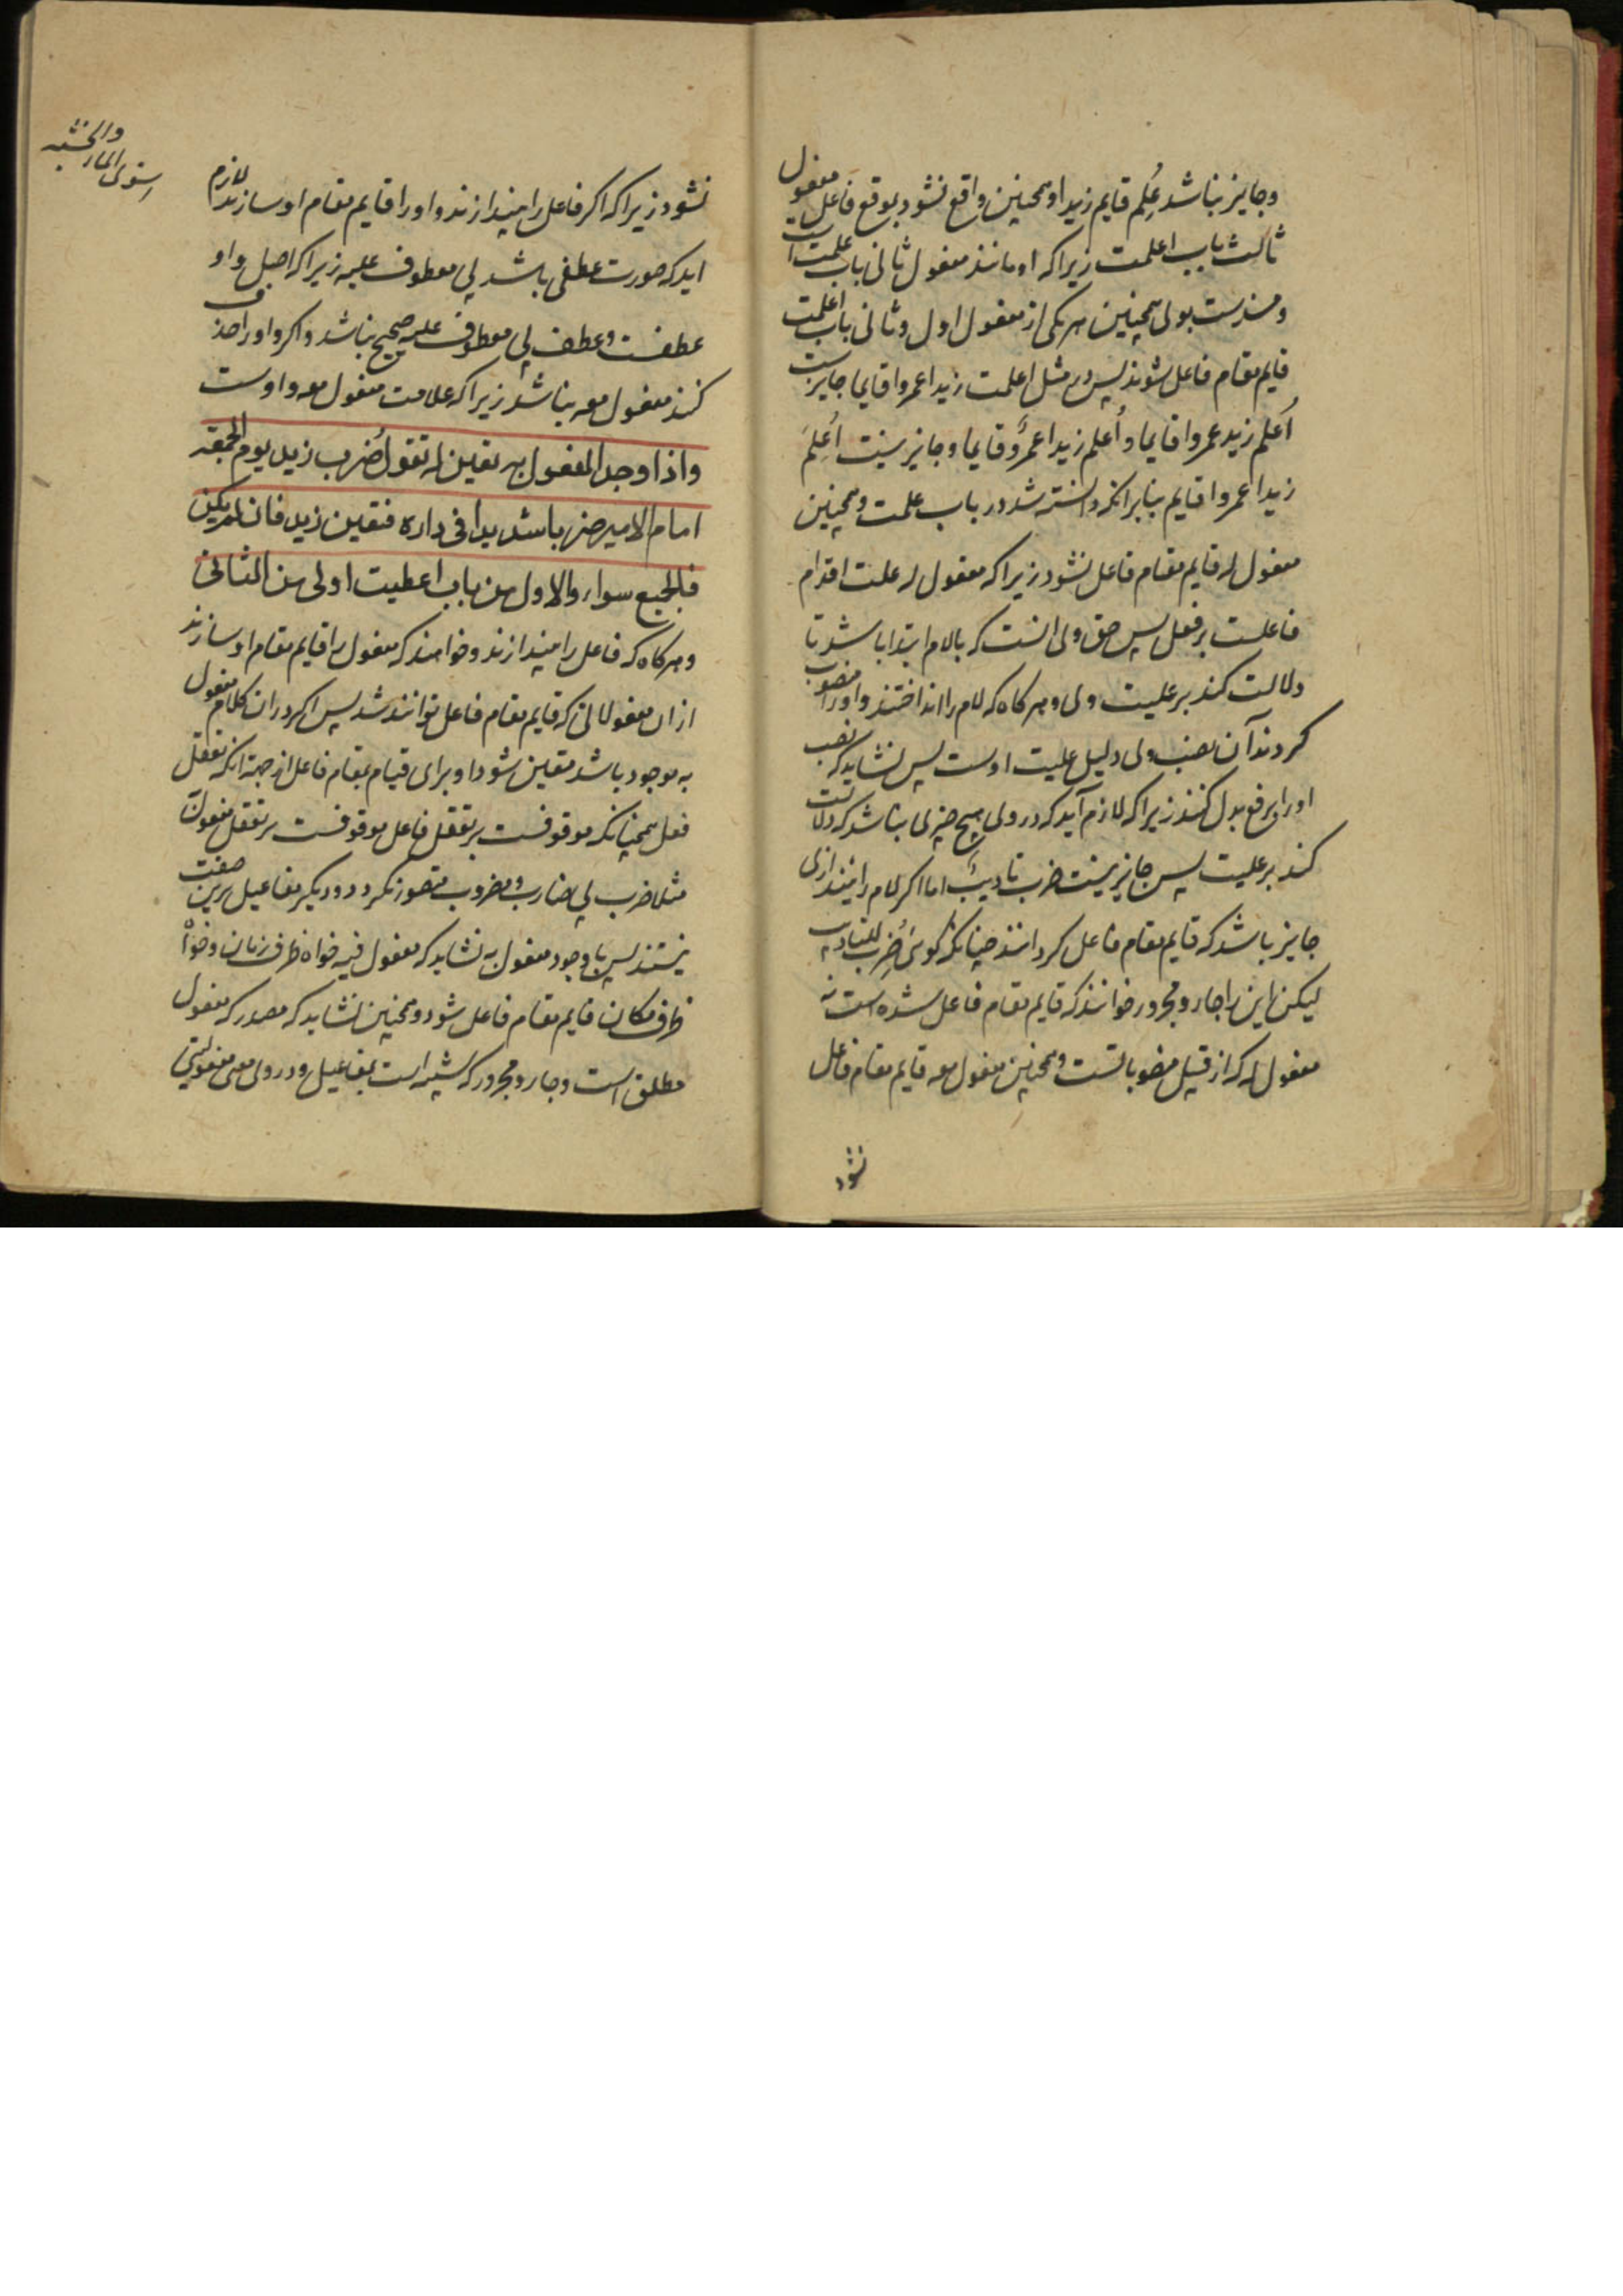 وجایز نباشد عُلِم قایم زیدا و همچنین واقع نشود بموقع فاعل مفعول
ثالث باب اعلمت زیرا که او مانند مفعول ثانی باب علمت است
ومسندست بوی همچنین هریکی از مفعول اول وثانی باب اعلمت
قایم مقام فاعل شوند پس در مثل اعلمت زیدا عمروا قایما جایزست
اُعلم زید عمروا قایما و اُعلم زیدا عمرٌو قایما وجایز نیست اُعلِمَ
زیدا عمروا قایم بنابر انکه دانسته شد در باب علمت وهمچنین
مفعول له قایم مقام فاعل نشود زیرا که مفعول له علت اقدام
فاعلست بر فعل پس حق وی انست که بالام ابتدا باشد تا
دلالت کند بر علیت وی وهرکاه که لام را انداختند واورا منصوب
کردند آن نصب وی دلیل علیت اوست پس نشاید که نصب
اورا برفع بدل کنند زیرا که لازم آید که در وی هیچ چیزی نباشد که دلالت
کند بر علیت پس جایز نیست ضرب تادیبٌ اما اکر لام را نیندازی
جایز باشد که قایم مقام فاعل کردانند چنانکه کوئی ضُرِب للتادیب
لیکن این را جار ومجرور خوانند که قایم مقام فاعل شده است نه
مفعول له که از قبیل منصوباتست وهمچنین مفعول معه قایم مقام فاعل
نشود
نشود زیرا که اکر فاعل را بیندازند واورا قایم مقام او سازند لازم
اید که صورت عطفی باشد بی معطوف علیه زیرا که اصل واو
عطفست وعطف بی معطوف علیه صحیح نباشد واکر واو را حذف
کنند مفعول معه نباشد زیرا که علامت مفعول معه واوست
واذا وجد المفعول به تعین له تقول ضُرب زید یوم الجمعة
امام الامیر ضربا شدیدا فی داره فتعین زید فان لم یکن
فالجمیع سواء والاول من باب اعطیت اولی من الثانی
وهرکاه که فاعل را بیندازند وخواهند که مفعول را قایم مقام او سازند
از ان مفعولاتی که قایم مقام فاعل توانند شد پس اکر در ان کلام مفعول
به موجود باشد متعین شود او برای قیام بمقام فاعل از جهة انکه تعقل
فعل همچنانکه موقوفست بر تعقل فاعل موقوفست بر تعقل مفعول
مثلا ضرب بی ضارب ومضروب متصور نکردد ودیکر مفاعیل برین صفت
نیستند پس با وجود مفعول به نشاید که مفعول فیه خواه ظرف زمان وخواه
ظرف مکان قایم مقام فاعل شود وهمچنین نشاید که مصدر که مفعول
مطلق است وجار ومجرور که شبیه است بمفاعیل ودر وی معنی مفعولیتی
استوی الماء
والخشبة